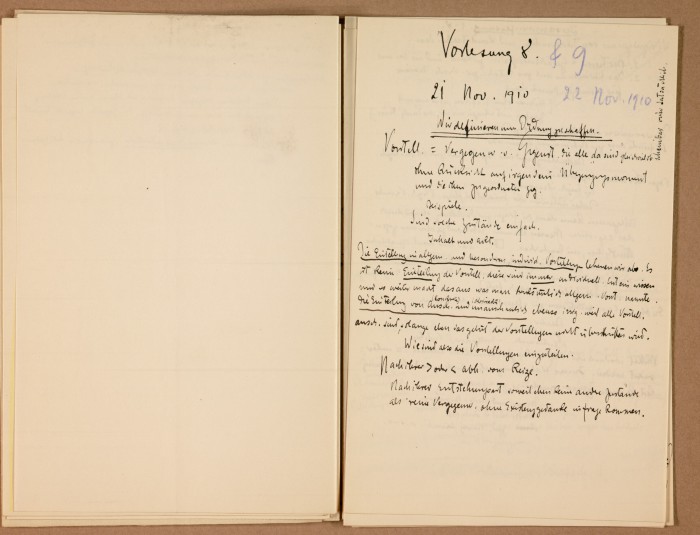 Vorlesung 8. & 9
21 Nov. 1910 22 Nov. 1910
Wir definieren um Ordnung zu schaffen.
Vorstell. = Vergegenw. v. Gegenst. die alle da sind
ohne Rücksicht auf irgend ein Überzeugungsmoment
und die ihm zugeordneten Geg.
Beispiele.
Sind solche Zustände einfach.
Inhalt und Akt.
Die Einteilung in allgem. und besondere, individ. Vorstellungen lehnen wir ab. Es
ist keine Einteilung der Vorstell., diese sind immer individuell. Es ist ein wissen
und es macht das aus was man allgem. Vorst. nannte.
Die Einteilung von ansch. und unanschaulich ebenso weil alle Vorstell.
ansch. sind, solange eben das gebiet der Vorstellungen nicht überschritten wird.
Wie sind also die Vorstellungen einzuteilen.
Nach ihrer > oder < abh. vom Reize.
Nach ihrer Entstehungsart soweit eben keine andre Zustände
als reine Vergegenw. ohne Existenzgedanke in frage kommen.